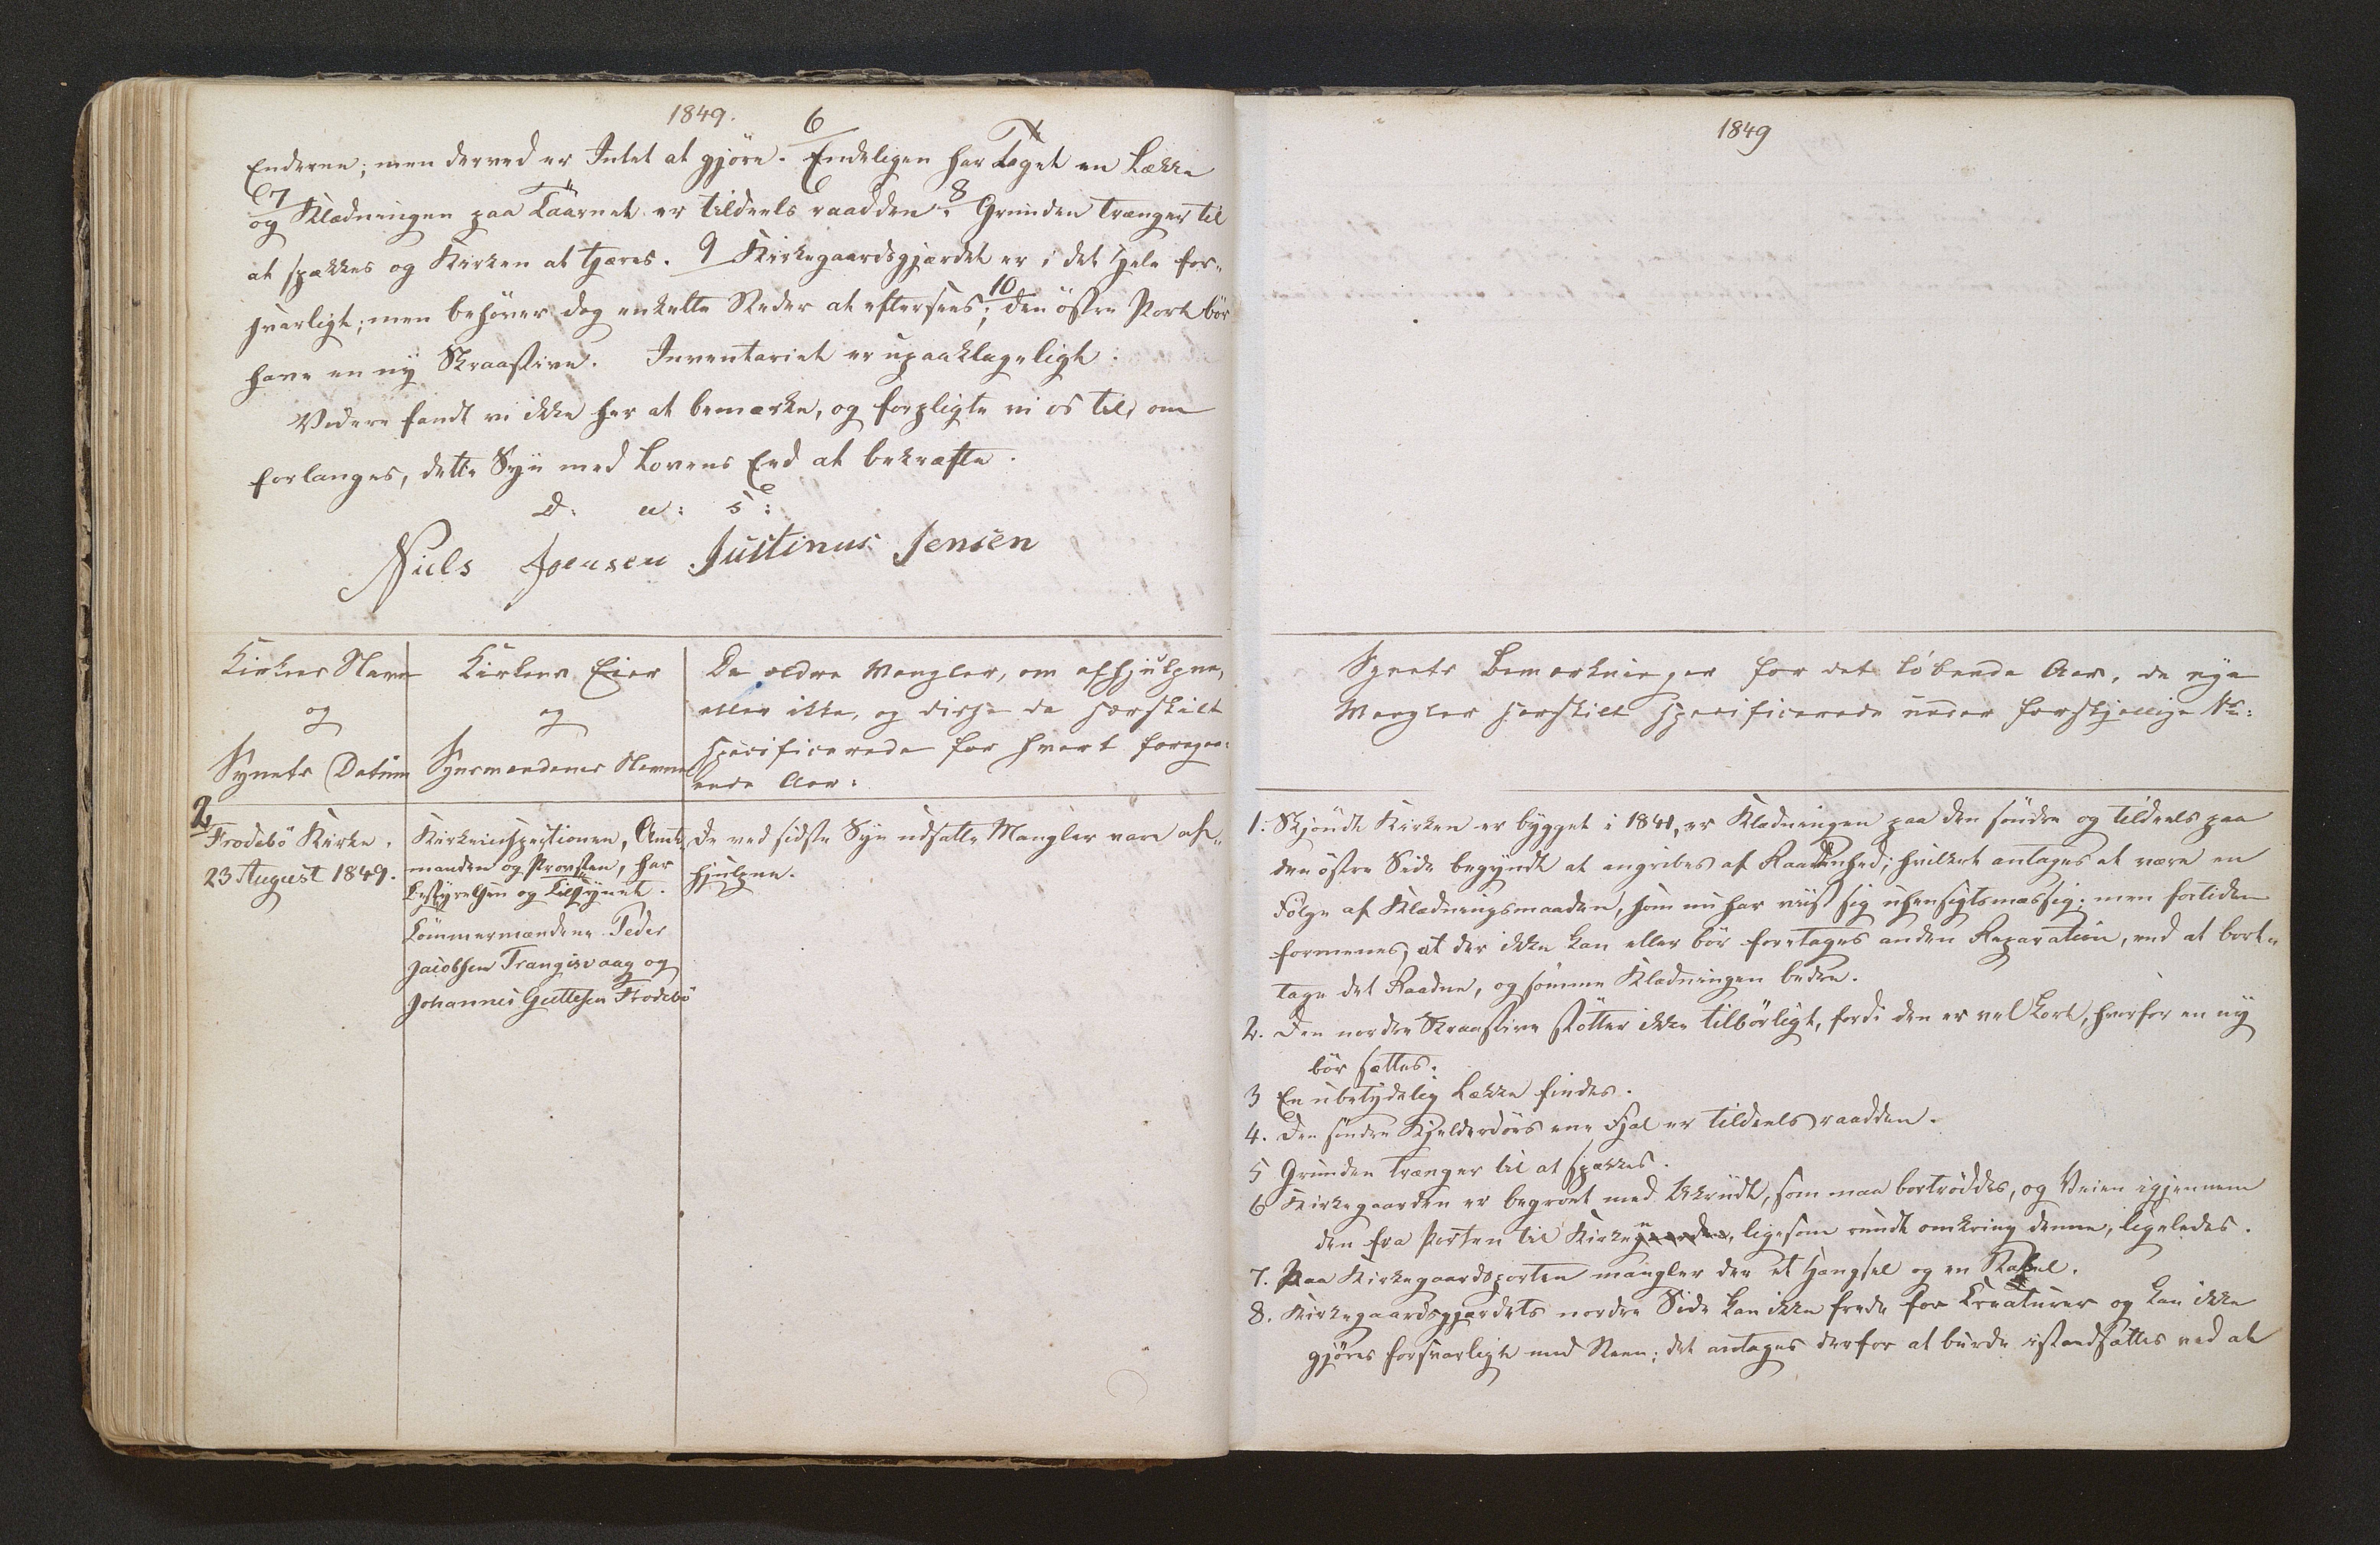 1849.
Enderne; men derved er Intet at gjöre. 6 Endeligen har Taget en Lække
7 og Klædningen paa Taarnet er tildeels raadden. 8 Grunden trænger til
at spækkes og Kirken at tjæres. 9 Kirkegaardsgjærdet er i det Hele for-
svarligt; men behöver dog enkelte Steder at eftersees; 10 den östre Port bör
have en ny Skraastiver. Inventariet er upaaklageligt.
Videre fandt vi ikke her at bemærke, og forpligte vi os til, om
forlanges, dette Syn med Lovens Eed at bekræfte.
D. u: s:
Niels Joensen Justinus Jensen
Kirkens Navn
og
Synets Datum
Kirkens Eier
og
Synsmændenes Navne
De ældre Mangler, om afhjulpne,
eller ikke, og disse da særskilt
specificerede for hvert foregaa-
ende Aar:
2
Frodebö Kirke.
23 August 1849.
Kirkeinspectionen, Amt-
manden og Provsten, har
Bestyrelsen og Tilsynet.
Tömmermændene Peder
Jacobsen Trangisvaag og
Johannes Guttesen Frodebö
De ved sidste Syn udsatte Mangler vare af-
hjulpne.
1849
Synets Bemærkninger for det löbende Aar, de nye
Mangler særskilt specificerede under forskjellige No:
1. Skjöndt Kirken er bygget i 1841, er Klædningen paa den söndre og tildeels paa
den östre Side begyndt at angribes af Raaddenhed; hvilket antages at være en
Fölge af Klædningsmaaden, som nu har viist sig uhensigtsmæssig; men fortiden
formenes, at der ikke kan eller bör foretages anden Reparation, end at bort-
tage det Raadne, og sömme Klædningen bedre.
2. Den nordre Skraastiver stötter ikke tilbörligt, fordi den er vel kort, hvorfor en ny
bör sættes.
3 En ubetydelig Lække findes.
4. Den söndre Kjelderdörs ene Fjæl er tildeels raadden.
5 Grunden trænger til at spækkes.
6 Kirkegaarden er begroet med Ukrudt, som maa bortröddes, og Veien igjennem
den fra Porten til Kirken, ligesom rundt omkring denne, ligeledes.
7. Paa Kirkegaardsporten mangler der et Hængsel og en Stabel.
8. Kirkegaardsgjærdets nordre Side kan ikke frede for Creaturer og kan ikke
gjöres forsvarligt med Steen; det antages derfor at burde istandsættes ved at